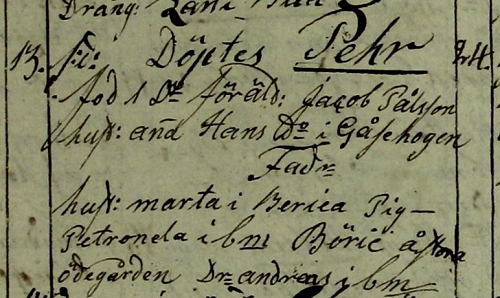 Dräng: Lars i
13. f: c: Döptes Pehr 24.
föd 1 Do föräld: Jacob Pålsson
hust: anna Hans Do i Gåsehogen
Fadr
hust: marta i Berica Pig-
Petronela i bm Böric å stora
ödegården Dr andreas i bm